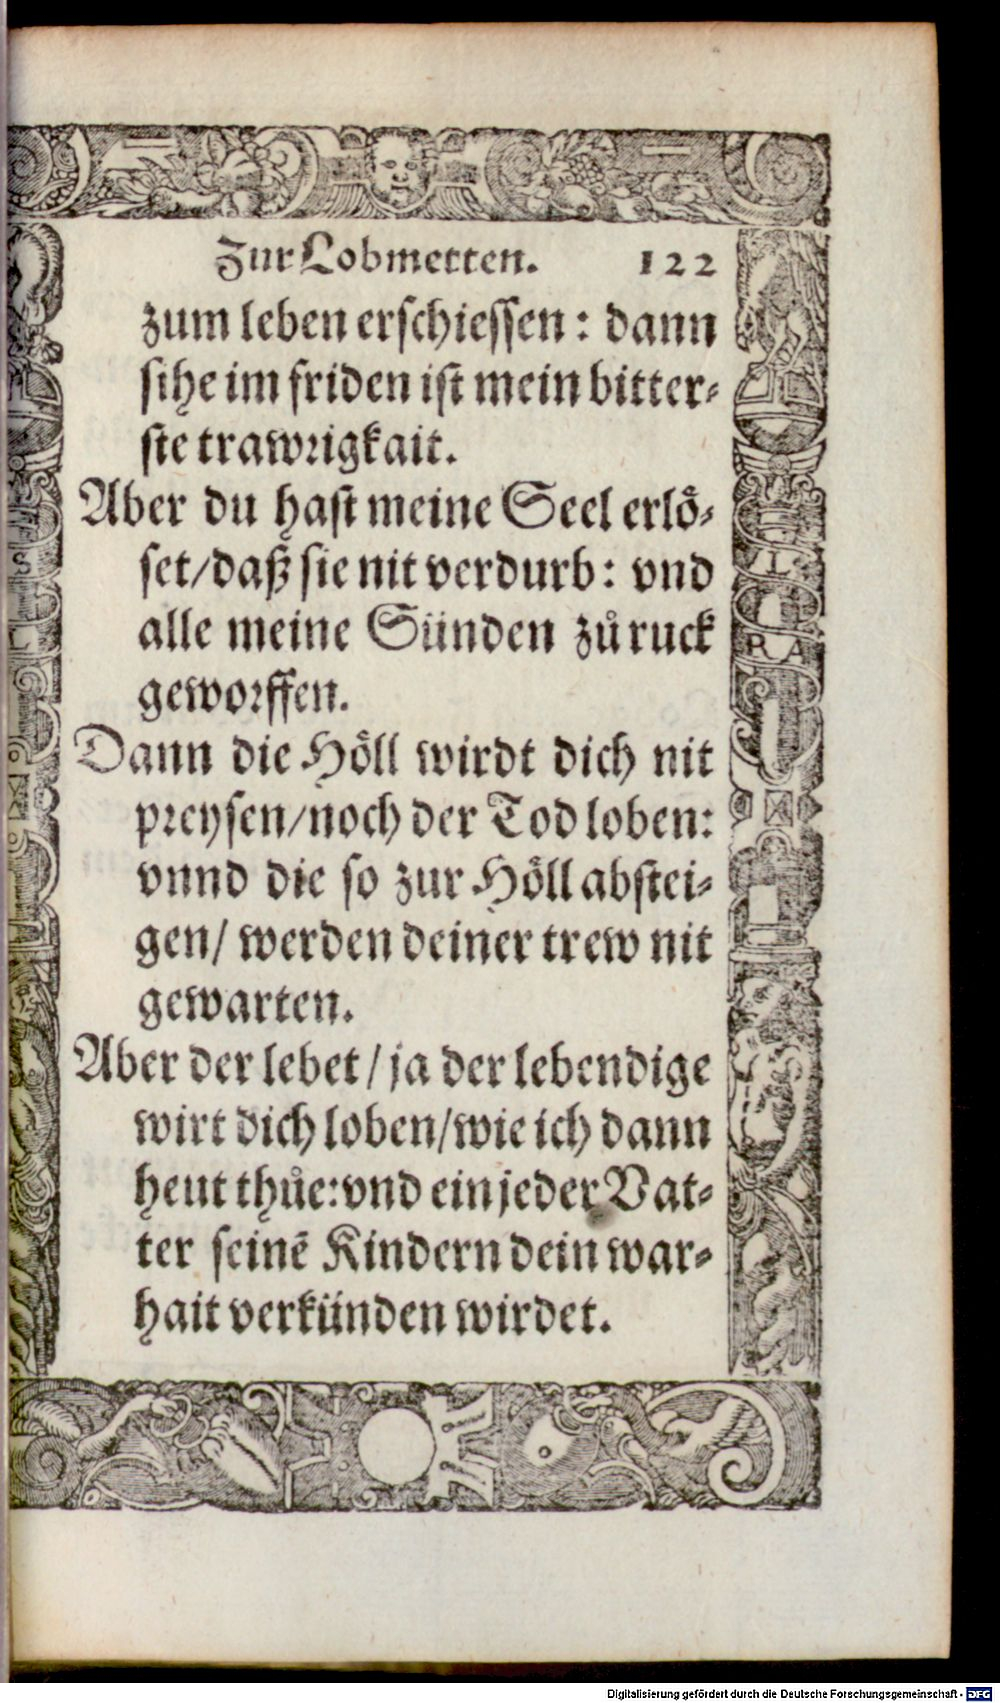 Zur Lobmetten. 122
zum leben erschiessen : dann
sihe im friden ist mein bitter-
ste trawrigkait.
Aber du hast meine Seel erlö-
set/daß sie nit verdurb: vnd
alle meine Sünden zůruck
geworffen.
Dann die Höll wirdt dich nit
preysen/noch der Tod loben:
vnnd die so zur Höll abstei-
gen/ werden deiner trew nit
gewarten.
Aber der lebet / ja der lebendige
wirt dich loben/wie ich dann
heut thůe:vnd ein jeder Vat-
ter seinē Kindern dein war-
hait verkünden wirdet.
S
L
L
R A
Digitalisierung gefördert durch die Deutsche Forschungsgemeinschaft - DFG